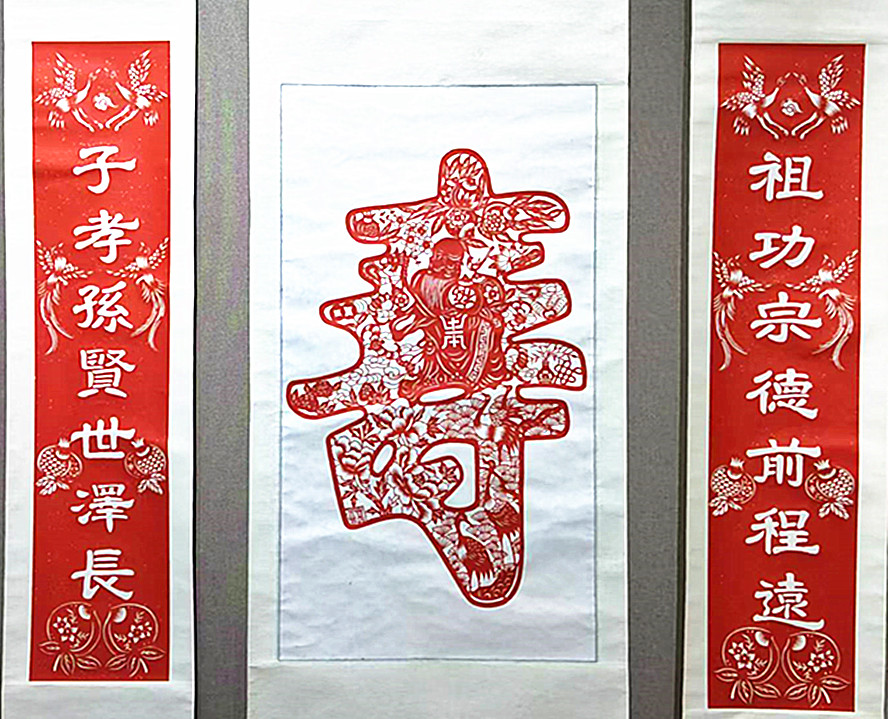 祖功宗德前程遠
壽
子孝孫賢世澤長